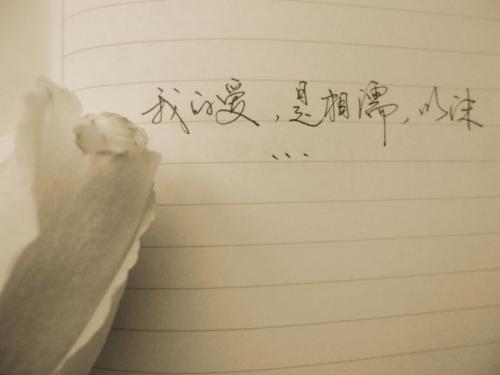 我的爱，是相濡，以沫
...